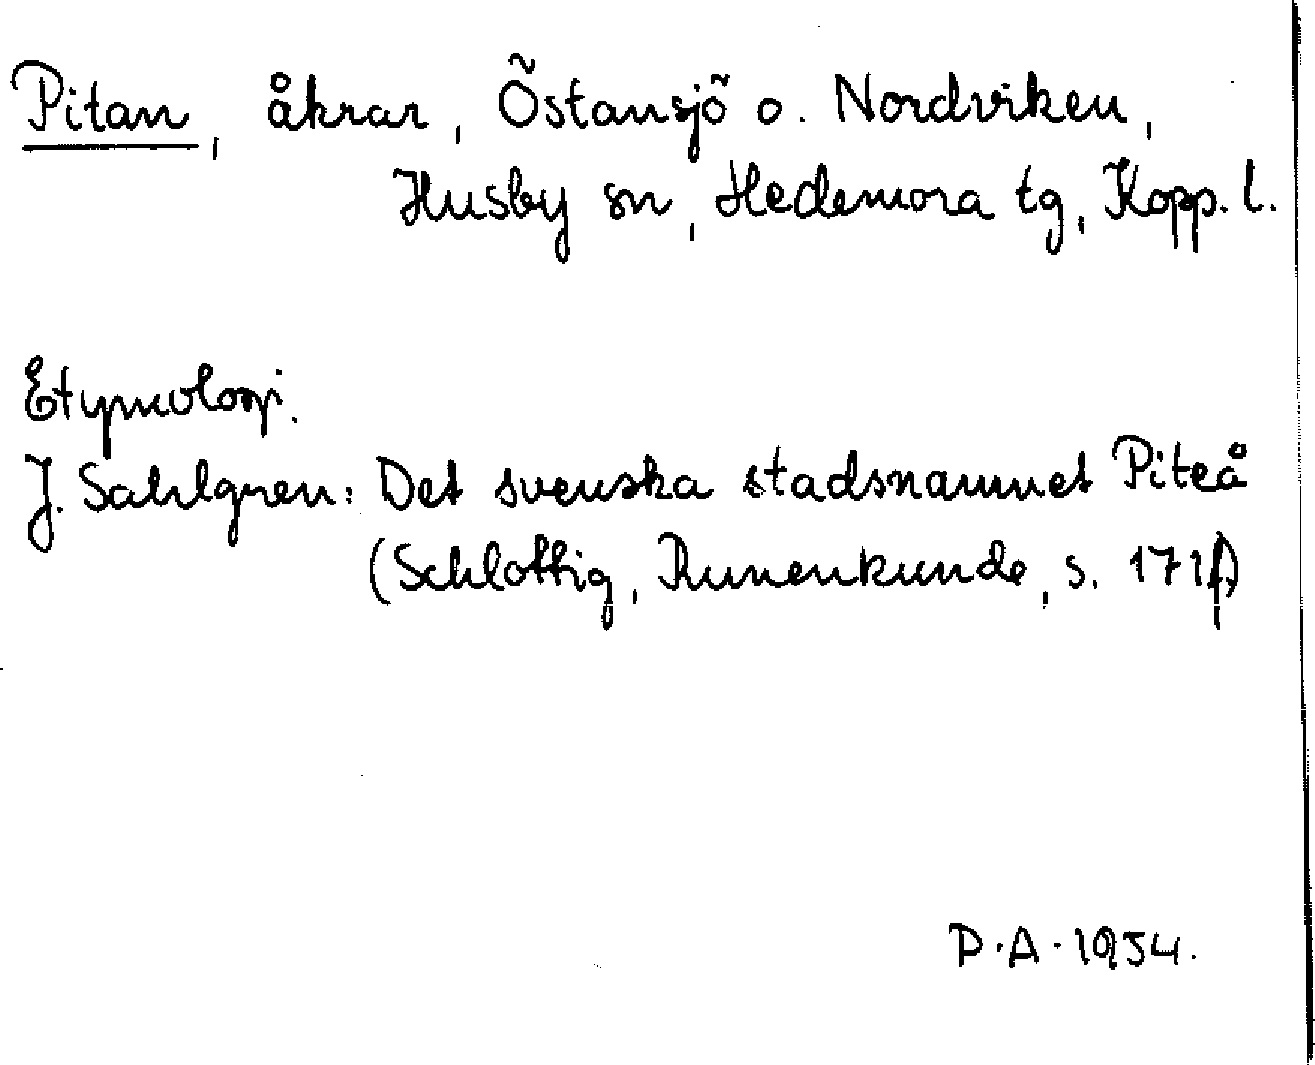 Pitan, åkrar, Östansjö o. Nordviken,
Husby sn, Hedemora tg, Kopp. l.
Etymologi.
J. Sahlgren: Det svenska stadsnamnet Piteå
(Schlottig, Runenkunde, s. 171f)
P.A. 1954.